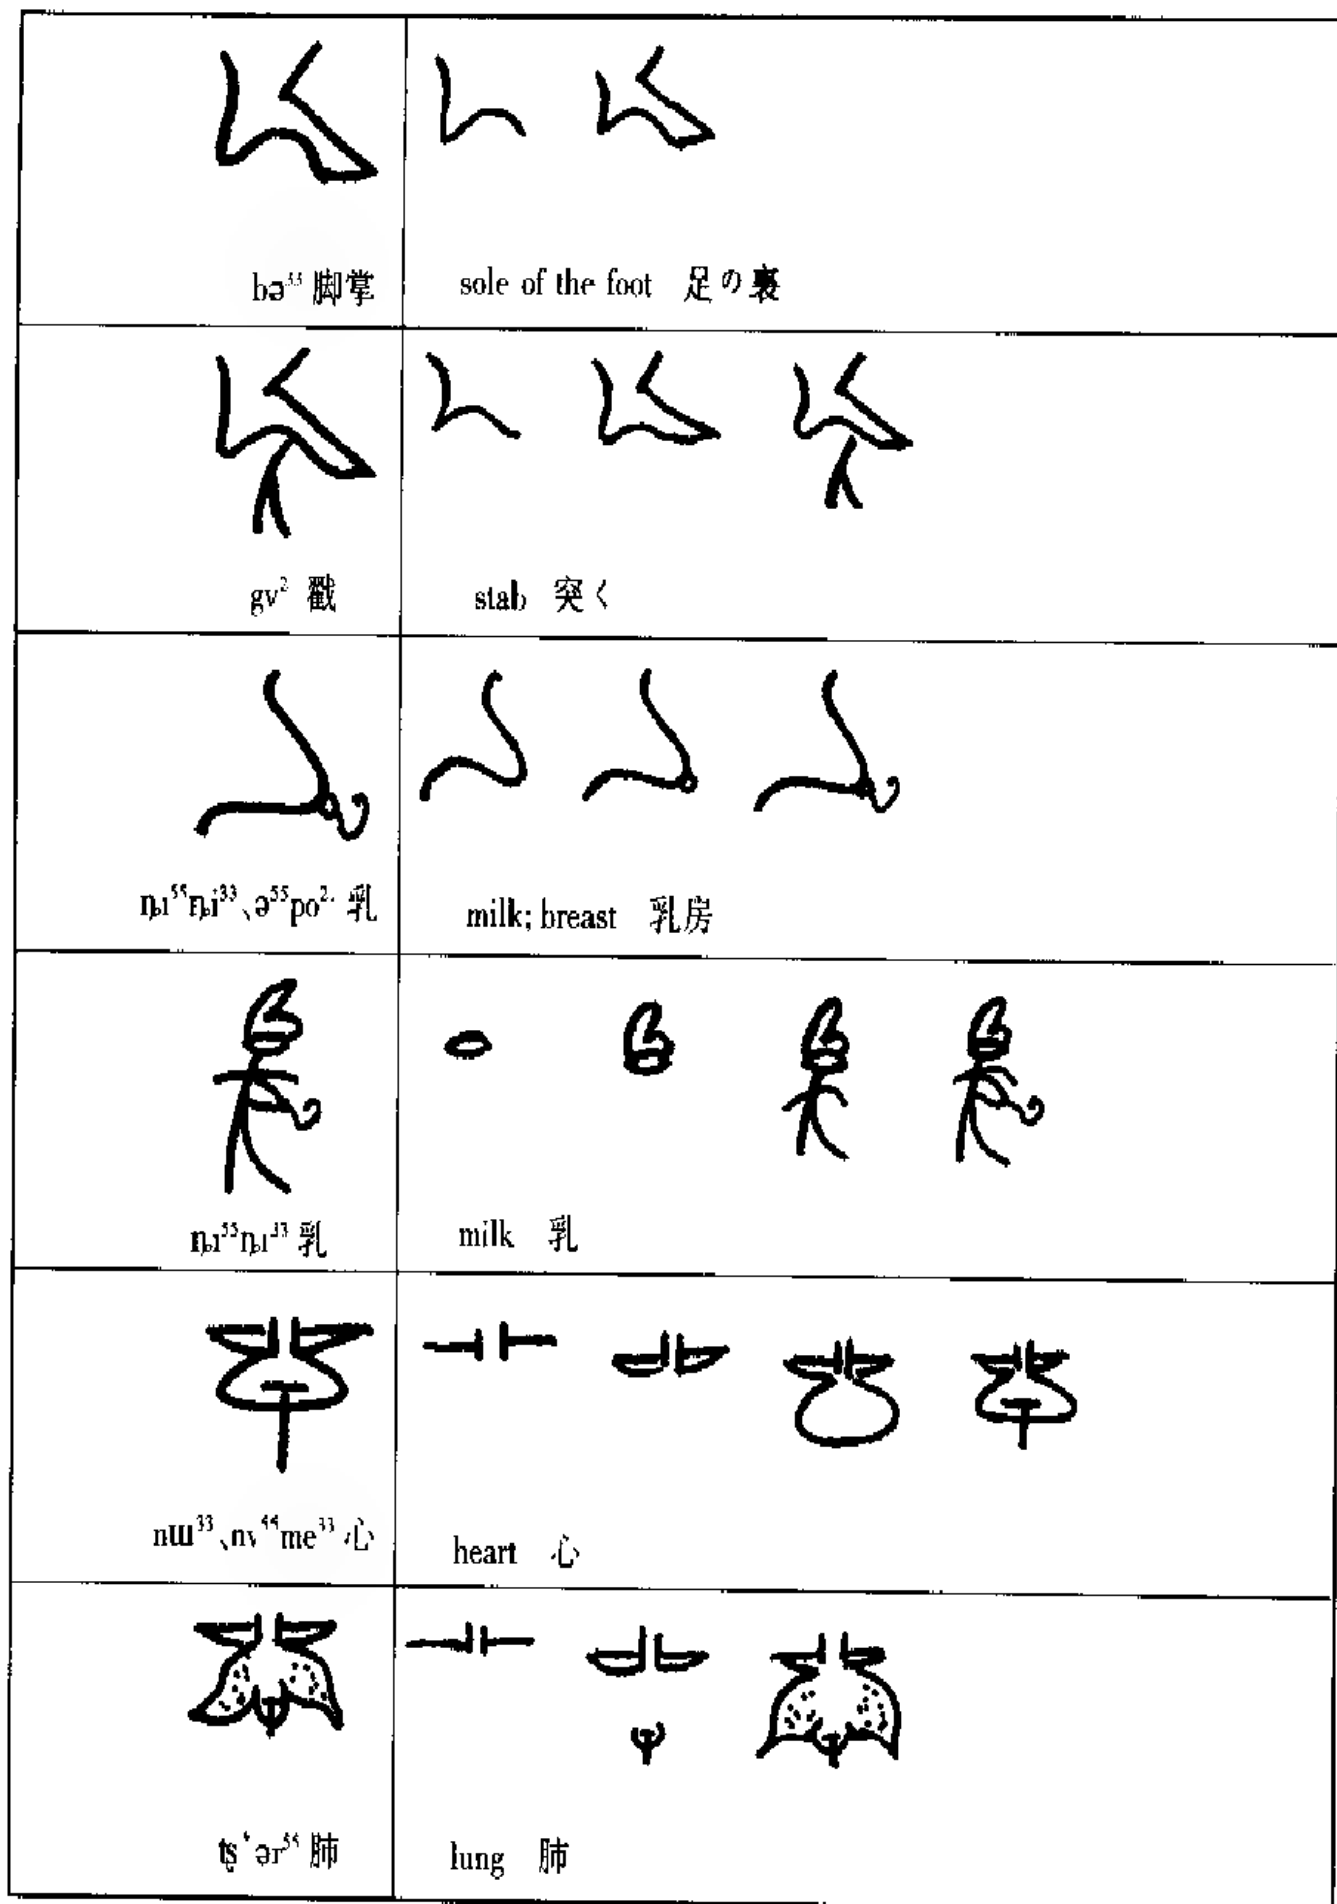 bə³³ 脚掌
sole of the foot 足の裏
gv² 戳
stab 突く
ȵi⁵⁵ȵi³³、ə⁵⁵po²· 乳
milk; breast 乳房
ȵi⁵⁵ȵi³³ 乳
milk 乳
nɯ³³、nv⁵⁵me³³ 心
heart 心
tʂʻər⁵⁵ 肺
lung 肺